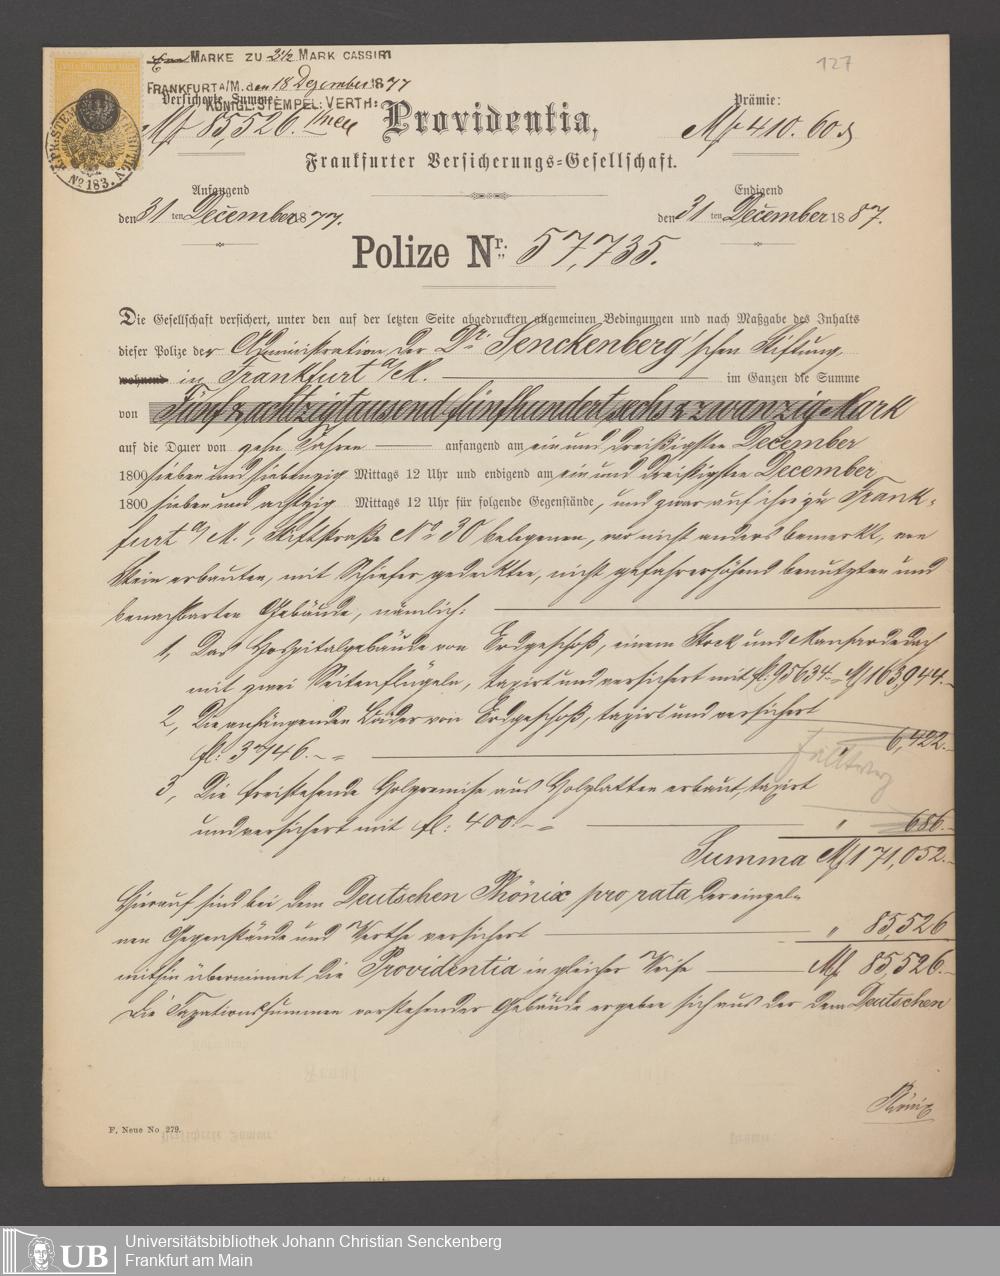 127
Eine MARKE ZU 2½ MARK CASSIRT
FRANKFURT A/M. den 18 Dezember 1877
KÖNIGL: STEMPEL: VERTH:
Nº 183.
Versicherte Summe:
Mk 85,526.
Prämie:
Mk 410. 60 ₰
Providentia,
Frankfurter Versicherungs-Gesellschaft.
Anfangend
den 31 ten December 1877.
Endigend
den 31 ten December 1887.
Polize Nr. 57,735.
Die Gesellschaft versichert, unter den auf der letzten Seite abgedruckten allgemeinen Bedingungen und nach Maßgabe des Inhalts
dieser Polize der Administration der Dr. Senckenberg'schen Stiftung
wohnend in Frankfurt a/M. im Ganzen die Summe
von Fünf & achtzigtausend fünfhundert sechs & zwanzig Mark
auf die Dauer von zehn Jahren anfangend am ein und dreißigsten December
1800 sieben und siebenzig Mittags 12 Uhr und endigend am ein und dreißigsten December
1800 sieben und achtzig Mittags 12 Uhr für folgende Gegenstände, und zwar auf ihre zu Frank-
furt a/M., Stiftstraße No 30 belegenen, wo nicht anders bemerkt, von
Stein erbauten, mit Schiefer gedeckten, nicht gefahrerhöhend benutzten und
benachbarten Gebäude, nämlich:
1, Das Hospitalgebäude von Erdgeschoß, einem Stock und Mansardedach
mit zwei Seitenflügeln, taxirt und versichert mit fl. 95634.– Mk 163,944.–
2, Die anhängenden Bäder von Erdgeschoß, taxirt und versichert
fl: 3746.– = " 6,422.–
3, Die freistehende Holzremise aus Holzlatten erbaut, taxirt
und versichert mit fl: 400.– = " 686.–
Summa Mk 171,052.–
Hierauf sind bei dem Deutschen Phönix pro rata der einzel-
nen Gegenstände und Werthe versichert " 85,526
mithin übernimmt die Providentia in gleicher Weise Mk 85,526.–
Die Taxationssummen vorstehender Gebäude ergeben sich aus der dem Deutschen
Phönix
F. Neue No 279.
UB
Universitätsbibliothek Johann Christian Senckenberg
Frankfurt am Main